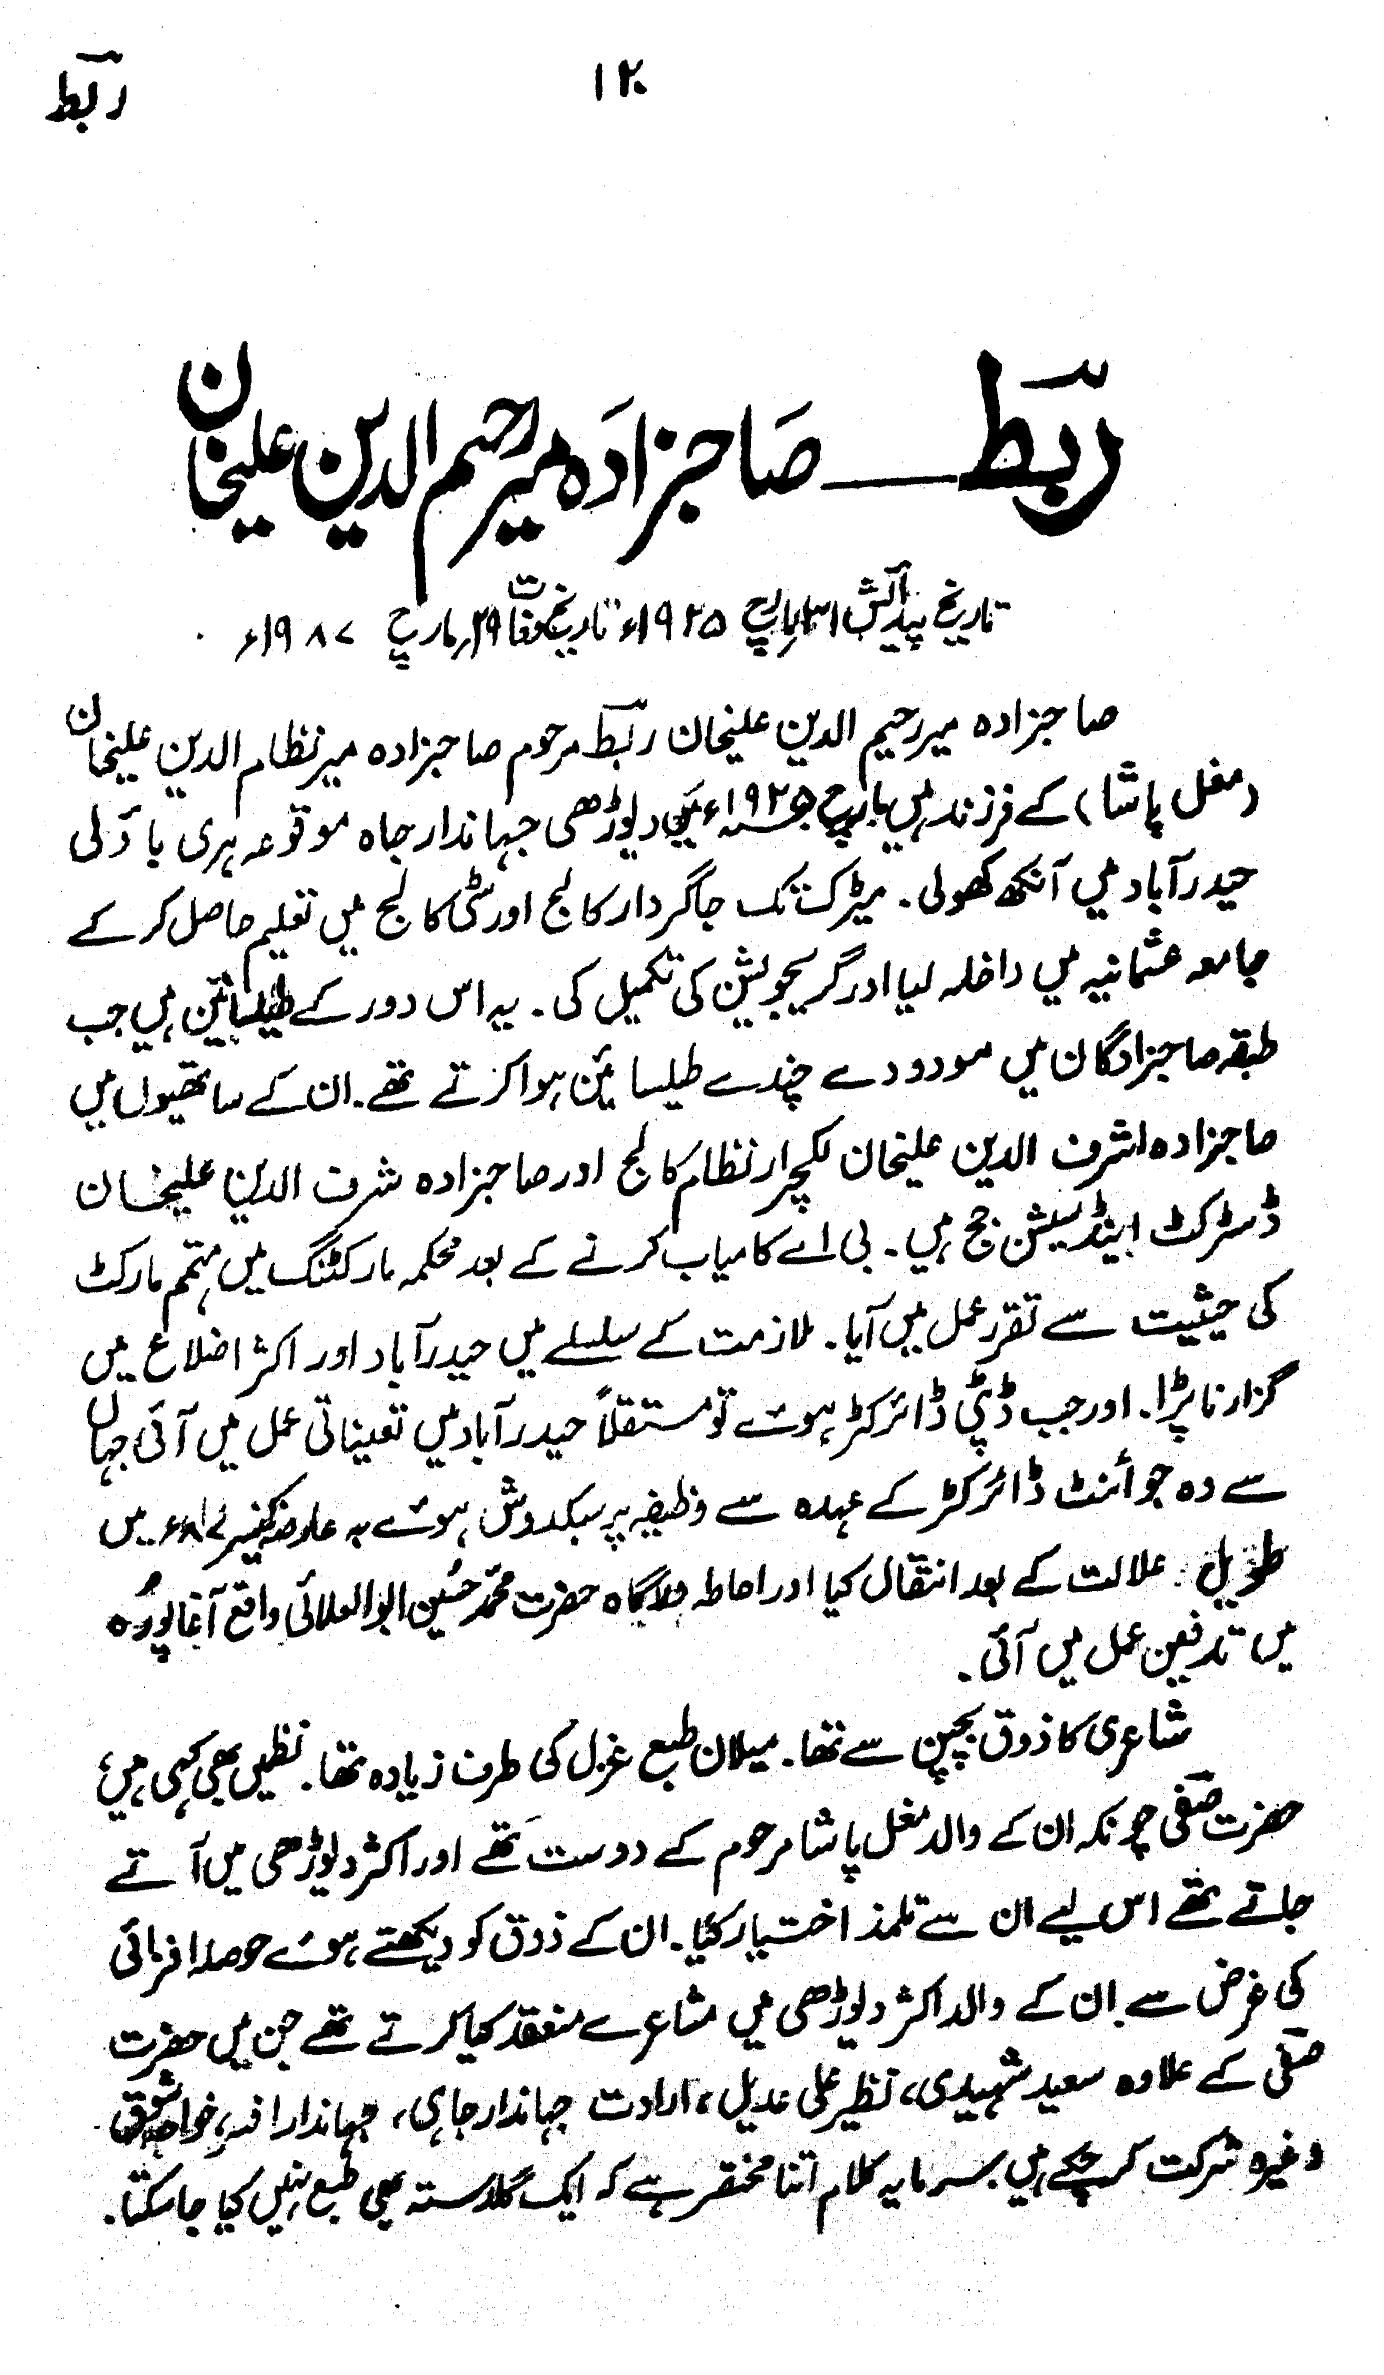 ربط
۱۲۰
ربط ـــــ صاحبزادہ میر رحیم الدین علیخان
تاریخ پیدائش ۳۱؍مارچ ۱۹۲۵ء تاریخ وفات ۲۹؍مارچ ۱۹۸۷ء
صاحبزادہ میر رحیم الدین علیخان ربط مرحوم صاحبزادہ میر نظام الدین علیخان
(مغل پاشا) کے فرزند ہیں مارچ ۱۹۲۵ء میں دیوڑھی جہاندار جاہ موقوعہ ہری باؤلی
حیدرآباد میں آنکھ کھولی۔ میٹرک تک جاگردار کالج اور سٹی کالج میں تعلیم حاصل کر کے
جامعہ عثمانیہ میں داخلہ لیا اور گریجویشن کی تکمیل کی۔ یہ اس دور کے طیلسانین ہیں جب
طبقہ صاحبزادگان میں معدودے چندے طیلسائین ہوا کرتے تھے۔ ان کے ساتھیوں میں
صاحبزادہ اشرف الدین علیخان لکچرار نظام کالج اور صاحبزادہ شرف الدین علیخان
ڈسٹرکٹ اینڈ سیشن جج ہیں۔ بی اے کامیاب کرنے کے بعد محکمہ مارکٹنگ میں مہتمم مارکٹ
کی حیثیت سے تقرر عمل میں آیا۔ ملازمت کے سلسلے میں حیدرآباد اور اکثر اضلاع میں
گزارنا پڑا۔ اور جب ڈپٹی ڈائرکٹر ہوئے تو مستقلاً حیدرآباد میں تعیناتی عمل میں آئی جہاں
سے وہ جوائنٹ ڈائرکٹر کے عہدہ سے وظیفہ پر سبکدوش ہوئے بہ عارضہ کینسر ۸۷ء میں
طویل علالت کے بعد انتقال کیا اور احاطہ درگاہ حضرت محمد حسین ابوالعلائی واقع آغاپورہ
میں تدفین عمل میں آئی۔
شاعری کا ذوق بچپن سے تھا۔ میلان طبع غزل کی طرف زیادہ تھا۔ نظمیں بھی کہی ہیں،
حضرت صفی چونکہ ان کے والد مغل پاشا مرحوم کے دوست تھے اور اکثر دیوڑھی میں آتے
جاتے تھے اس لیے ان سے تلمذ اختیار کیا۔ ان کے ذوق کو دیکھتے ہوئے حوصلہ افزائی
کی غرض سے ان کے والد اکثر دیوڑھی میں مشاعرے منعقد کیا کرتے تھے جن میں حضرت
صفی کے علاوہ سعید شہیدی، نظیر علی عدیل، ارادت جہاندار جاہی، جہاندار افسر، خواجہ شوق
وغیرہ شرکت کر چکے ہیں۔ سرمایہ کلام اتنا مختصر ہے کہ ایک گلدستہ بھی طبع نہیں کیا جا سکتا۔